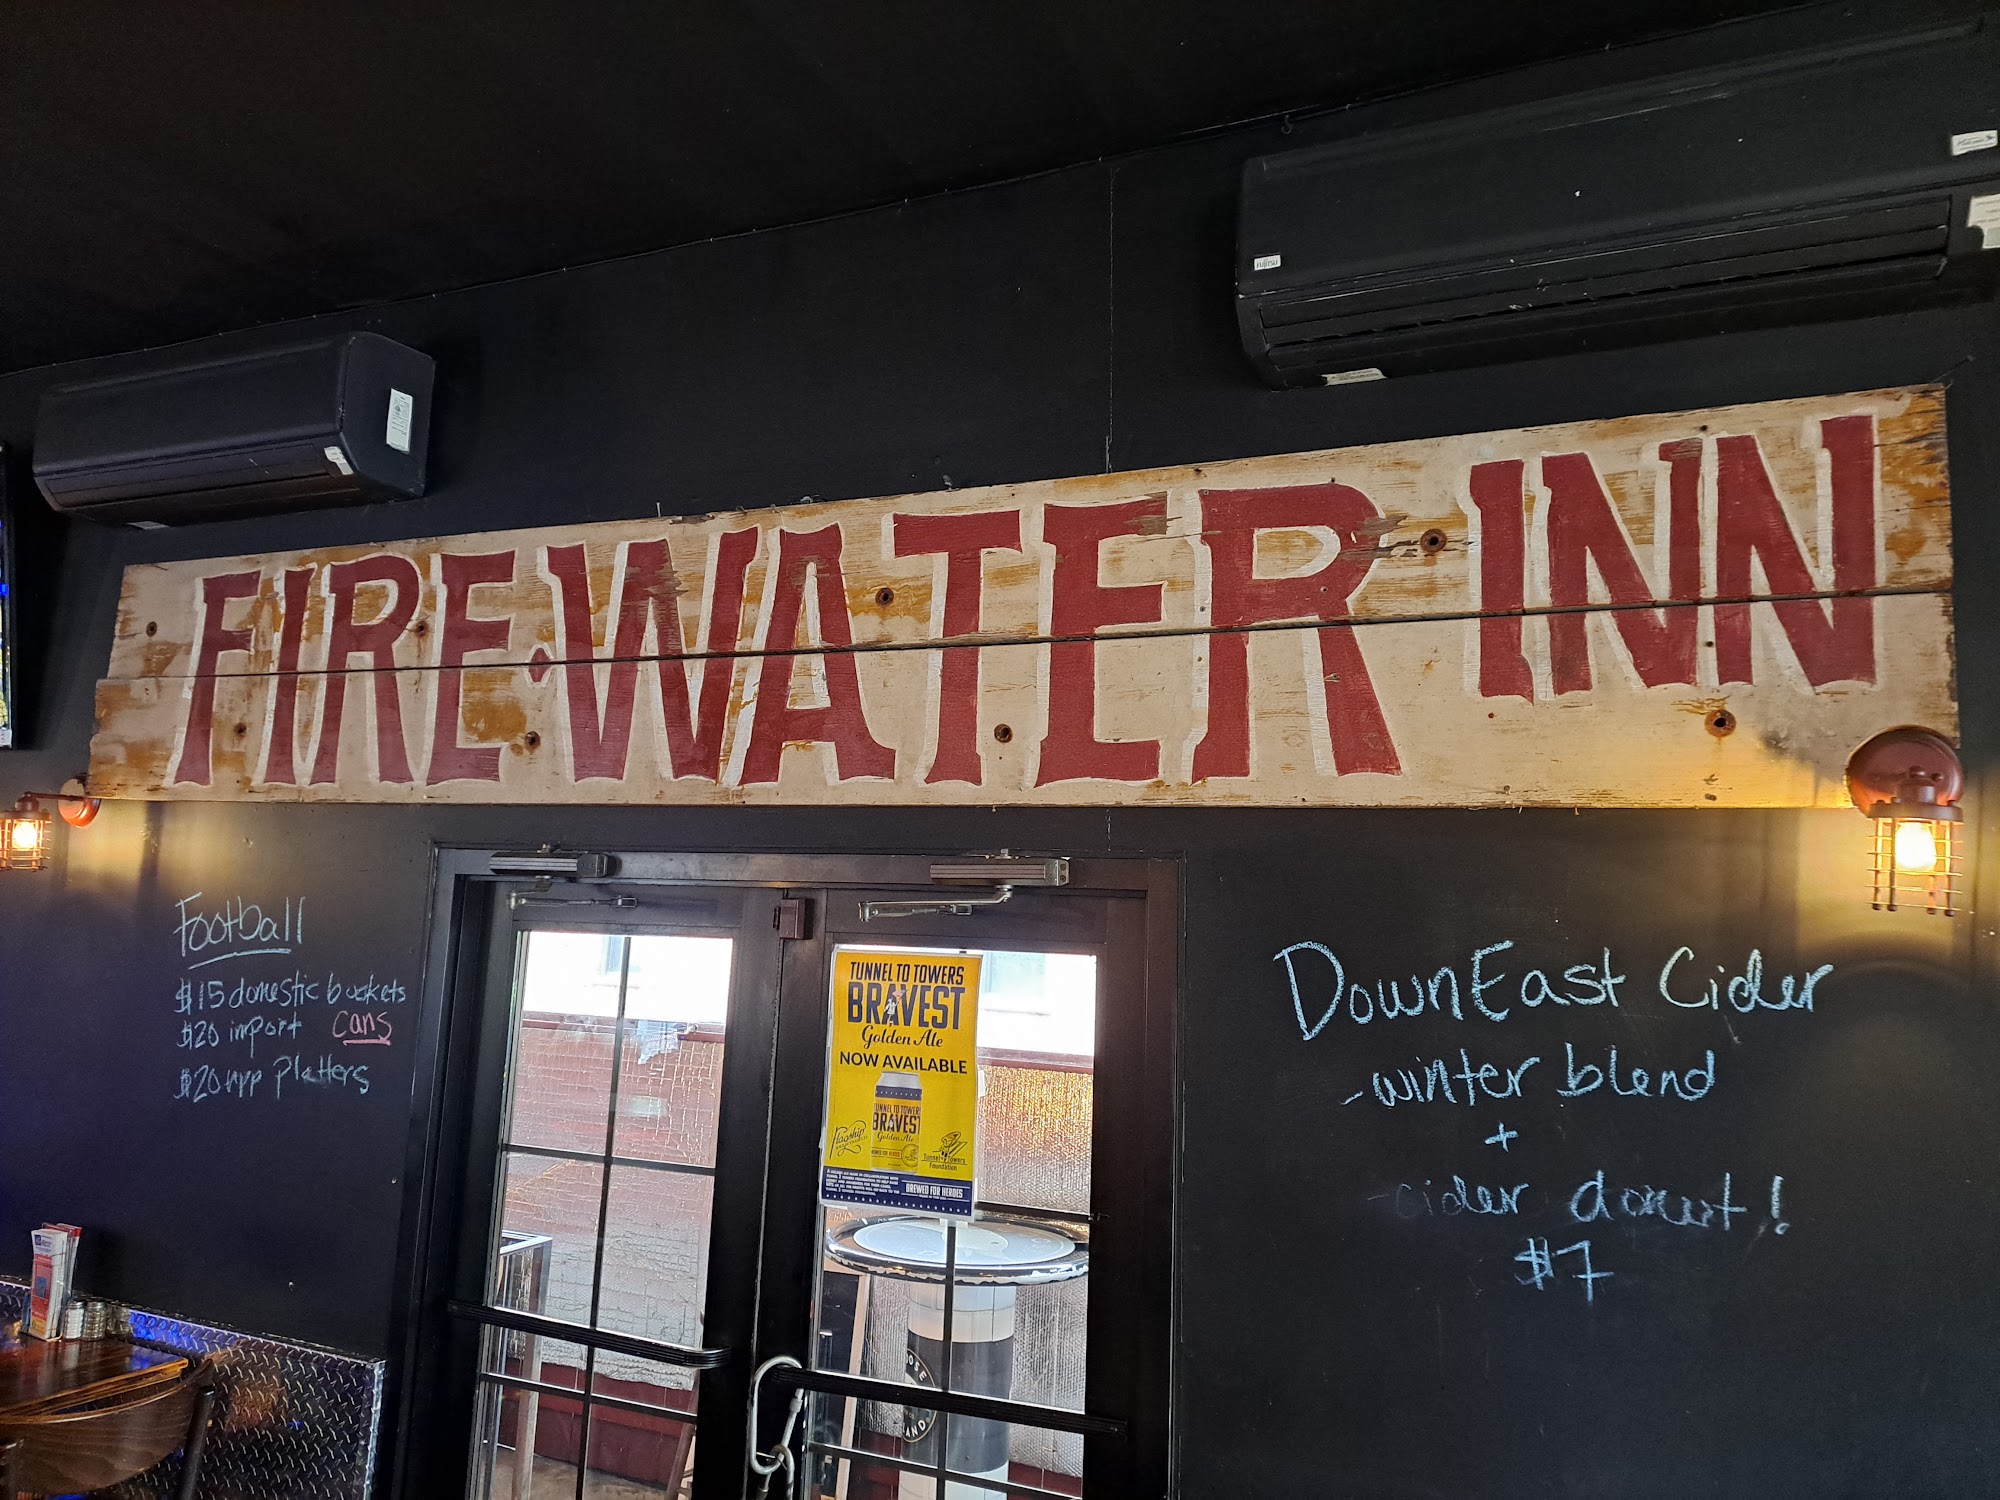 FUJITSU
FIRE·WATER INN
Football
$15 domestic buckets
$20 import cans
$20 app platters
TUNNEL TO TOWERS
BRAVEST
Golden Ale
NOW AVAILABLE
TUNNEL TO TOWERS
BRAVEST
Golden Ale
Flagship
Tunnel Towers
Foundation
BREWED FOR HEROES
DownEast Cider
-winter blend
+
-cider donut!
$7